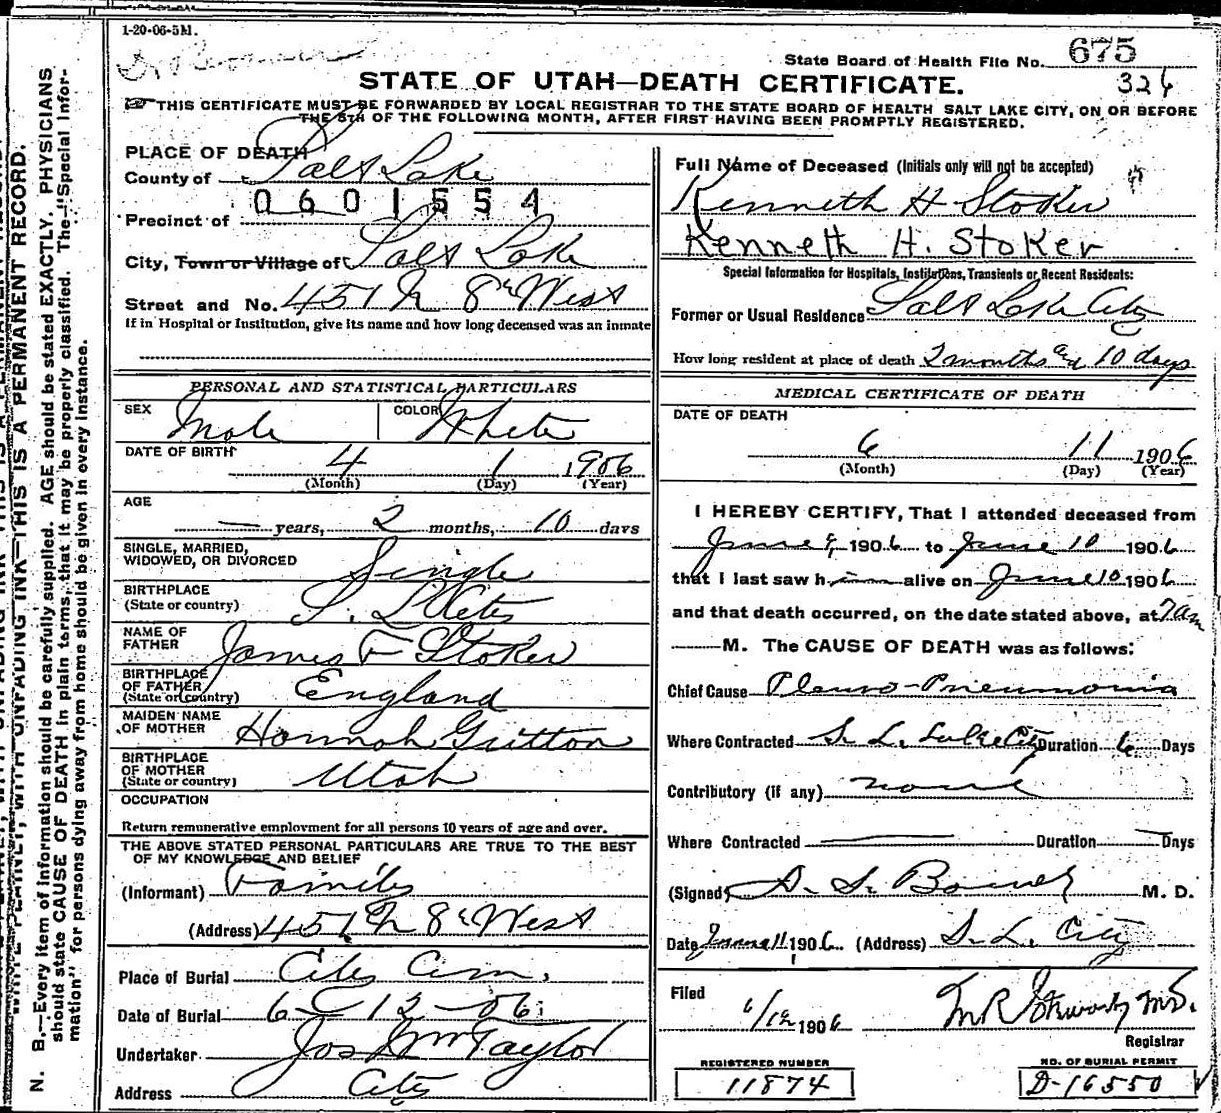 1-20-06-5M.
State Board of Health File No. 675
326
STATE OF UTAH—DEATH CERTIFICATE.
THIS CERTIFICATE MUST BE FORWARDED BY LOCAL REGISTRAR TO THE STATE BOARD OF HEALTH SALT LAKE CITY, ON OR BEFORE
THE 5TH OF THE FOLLOWING MONTH, AFTER FIRST HAVING BEEN PROMPTLY REGISTERED.
PLACE OF DEATH
County of Salt Lake
0601554
Precinct of
City, Town or Village of Salt Lake
Street and No. 451 N 8th West
If in Hospital or Institution, give its name and how long deceased was an inmate
PERSONAL AND STATISTICAL PARTICULARS
SEX Male COLOR White
DATE OF BIRTH 4 1 1906
(Month) (Day) (Year)
AGE
— years, 2 months, 10 days
SINGLE, MARRIED,
WIDOWED, OR DIVORCED Single
BIRTHPLACE
(State or country) S. L. City
NAME OF
FATHER James F Stoker
BIRTHPLACE
OF FATHER
(State or country) England
MAIDEN NAME
OF MOTHER Hannah Gritton
BIRTHPLACE
OF MOTHER
(State or country) Utah
OCCUPATION
Return remunerative employment for all persons 10 years of age and over.
THE ABOVE STATED PERSONAL PARTICULARS ARE TRUE TO THE BEST
OF MY KNOWLEDGE AND BELIEF
(Informant) Family
(Address) 451 N 8th West
Place of Burial City Cem.
Date of Burial 6 - 12 - 06
Undertaker Jos Wm Taylor
Address City
Full Name of Deceased (Initials only will not be accepted)
Kenneth H Stoker
Kenneth H. Stoker
Special Information for Hospitals, Institutions, Transients or Recent Residents:
Former or Usual Residence Salt Lake City
How long resident at place of death 2 months and 10 days
MEDICAL CERTIFICATE OF DEATH
DATE OF DEATH
6 11 1906
(Month) (Day) (Year)
I HEREBY CERTIFY, That I attended deceased from
June 9, 1906 to June 10 1906
that I last saw him alive on June 10 1906
and that death occurred, on the date stated above, at 7 am
M. The CAUSE OF DEATH was as follows:
Chief Cause Pleuro-Pneumonia
Where Contracted S. L. City Duration 6 Days
Contributory (if any) none
Where Contracted — Duration — Days
(Signed) M. D.
Date June 11 1906 (Address) S. L. City
Filed
6/12 1906 M.D.
Registrar
REGISTERED NUMBER
11874
NO. OF BURIAL PERMIT
D-16550
WRITE PLAINLY, WITH UNFADING INK—THIS IS A PERMANENT RECORD.
N. B.—Every item of information should be carefully supplied. AGE should be stated EXACTLY. PHYSICIANS
should state CAUSE OF DEATH in plain terms, that it may be properly classified. The "Special Infor-
mation" for persons dying away from home should be given in every instance.